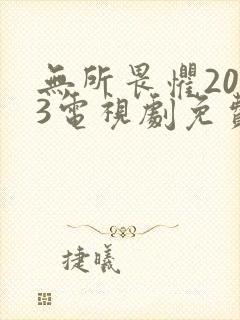 無所畏懼20
3電視劇免費
捷曦